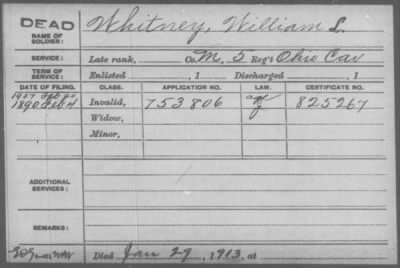 DEAD
NAME OF SOLDIER: Whitney, William L.
SERVICE: Late rank, Co. M, 5 Reg't Ohio Cav
TERM OF SERVICE: Enlisted , 1 Discharged , 1
DATE OF FILING. CLASS. APPLICATION NO. LAW. CERTIFICATE NO.
1907
1890 Invalid, 753806 825267
Widow,
Minor,
ADDITIONAL SERVICES:
REMARKS:
Died Jan 29, 1913, at